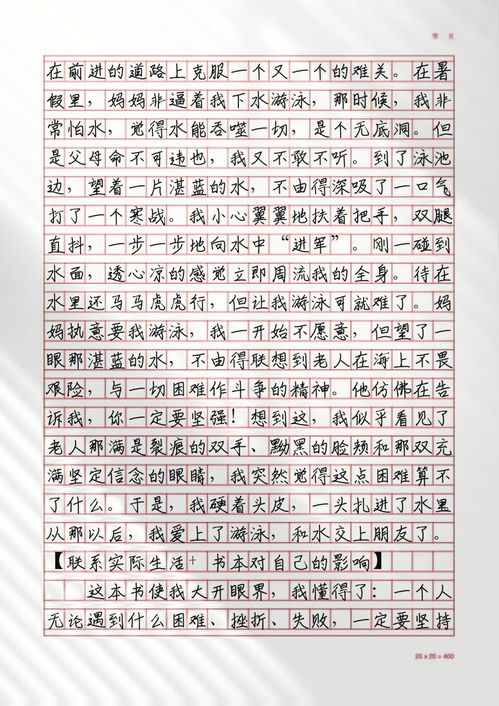 在前进的道路上克服一个又一个的难关。在暑
假里，妈妈非逼着我下水游泳，那时候，我非
常怕水，觉得水能吞噬一切，是个无底洞。但
是父母命不可违也，我又不敢不听。到了泳池
边，望着一片湛蓝的水，不由得深吸了一口气
打了一个寒战。我小心翼翼地扶着把手，双腿
直抖，一步一步地向水中“进军”。刚一碰到
水面，透心凉的感觉立即周流我的全身。待在
水里还马马虎虎行，但让我游泳可就难了。妈
妈执意要我游泳，我一开始不愿意，但望了一
眼那湛蓝的水，不由得联想到老人在海上不畏
艰险，与一切困难作斗争的精神。他仿佛在告
诉我，你一定要坚强！想到这，我似乎看见了
老人那满是裂痕的双手、黝黑的脸颊和那双充
满坚定信念的眼睛，我突然觉得这点困难算不
了什么。于是，我硬着头皮，一头扎进了水里
从那以后，我爱上了游泳，和水交上朋友了。
【联系实际生活+书本对自己的影响】
这本书使我大开眼界，我懂得了：一个人
无论遇到什么困难、挫折、失败，一定要坚持
20 x 20 = 400